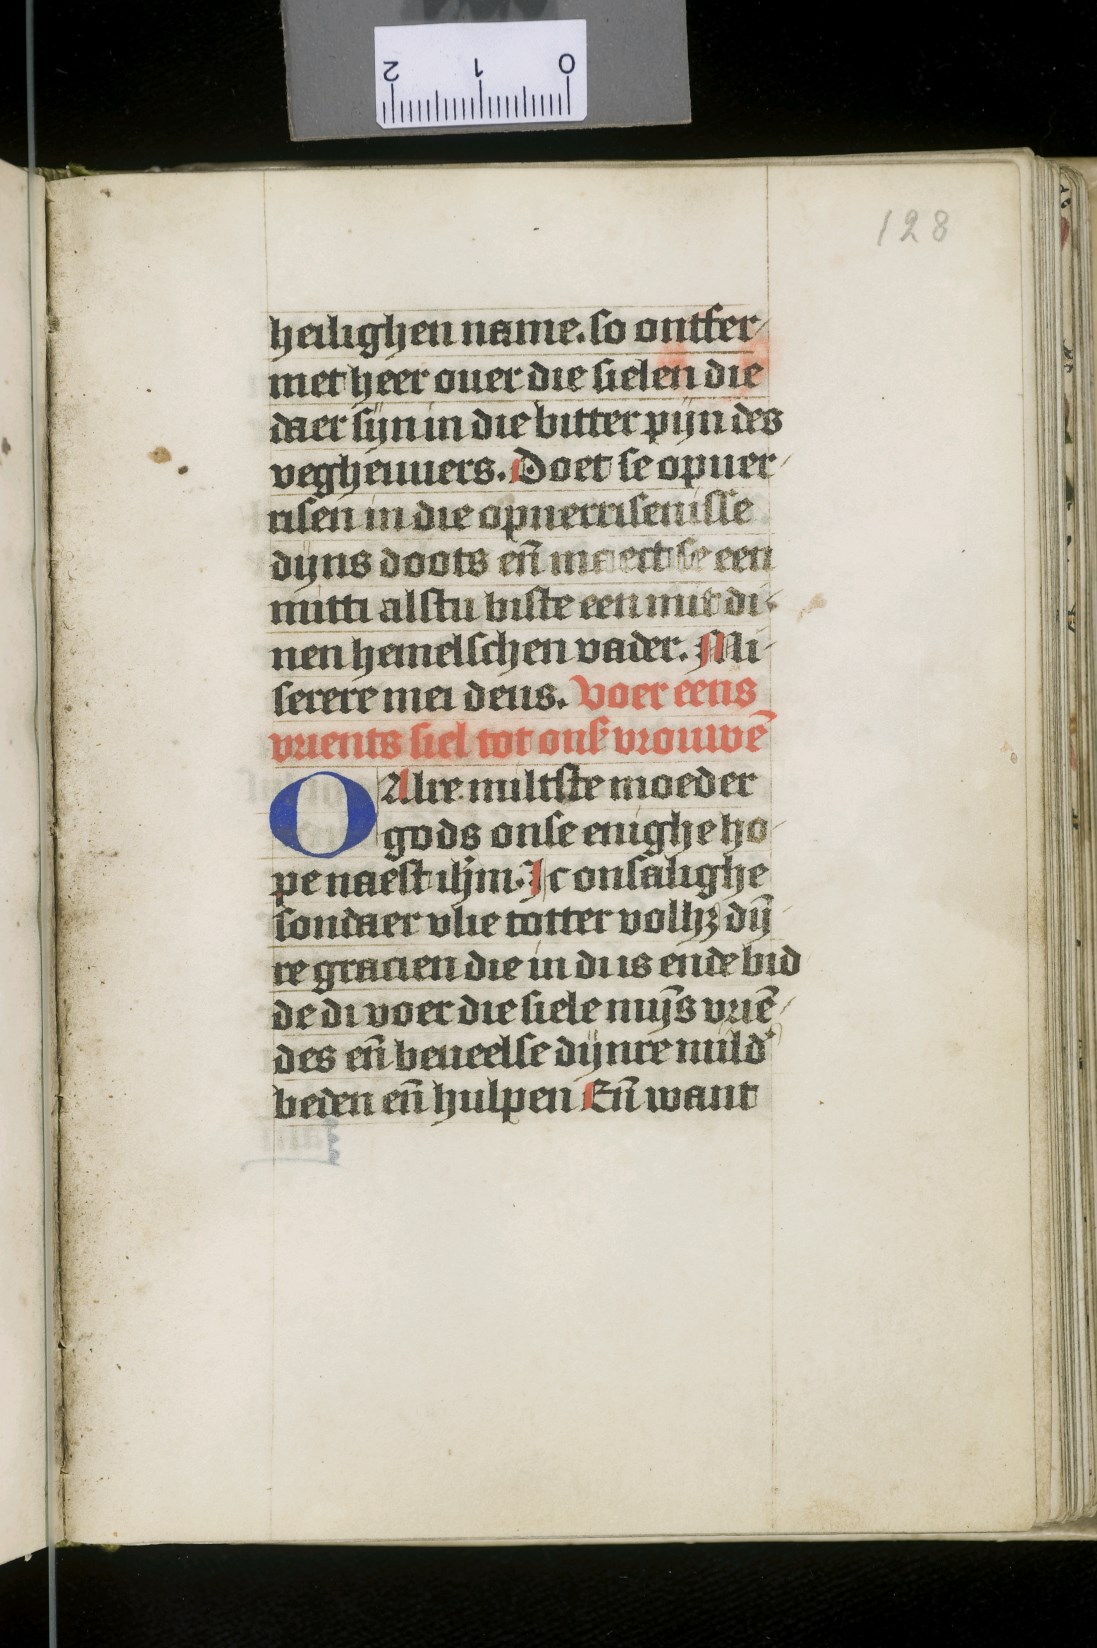 2 1 0
128
heilighen name. so ontfer-
met heer ouer die sielen die
daer sijn in die bitter pijn des
vegheuuers. Doet se opuer-
risen in die opuerrisenisse
dijns doots en̄ maect se een
mit ti alstu biste een mit di-
nen hemelschen vader. Mi-
serere mei deus. Voer eens
vrients siel tot ons vrouwē
O Alre miltste moeder
gods onse enighe ho-
pe naest ihm̄. Ic onsalighe
sondaer vlie totter volhʒ dij̄-
re gracien die in di is ende bid
de di voer die siele mij̄s vriē-
des en̄ beueelse dijnre mild'
beden en̄ hulpen En̄ want